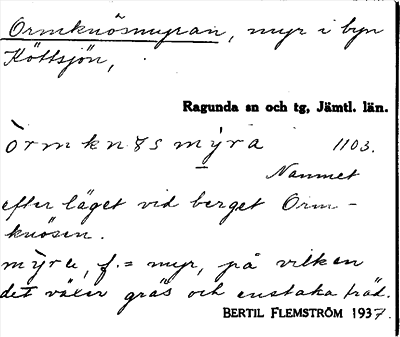 Ormknösmyran, myr i byn
Köttsjön,
Ragunda sn och tg, Jämtl. län.
òrmknøsmỳra 1103.
Namnet
efter läget vid berget Orm-
knösen.
mỳra, f. = myr, på vilken
det växer gräs och enstaka träd.
BERTIL FLEMSTRÖM 1937.